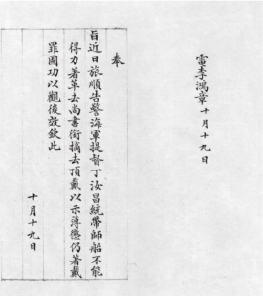 電李鴻章十月十九日
奉
旨近日旅順告警海軍提督丁汝昌統帶師船不能
得力著革去尚書銜摘去頂戴以示薄懲仍著戴
罪圖功以觀後效欽此
十月十九日